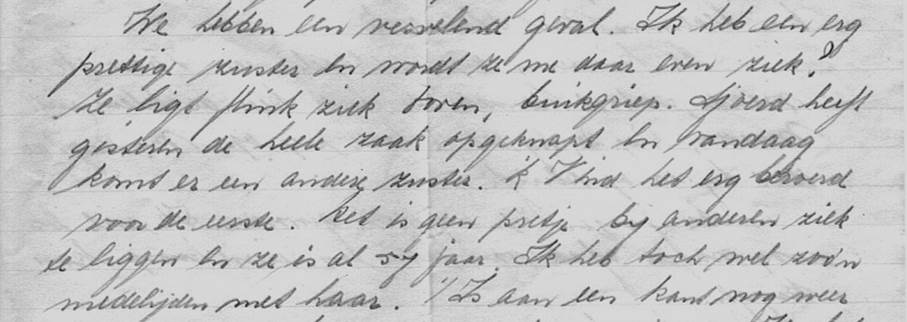 We hebben een vervelend geval. Ik heb een erg
prettige zuster en wordt ze me daar even ziek?
Ze ligt flink ziek boven, buikgriep. Sjoerd heeft
gisteren de heele zaak opgeknapt en vandaag
komt er een andere zuster. 'k Vind het erg beroerd
voor de eerste. Het is geen pretje bij anderen ziek
te liggen en ze is al 57 jaar. Ik heb toch wel zoo'n
medelijden met haar. 't Is aan een kant nog weer